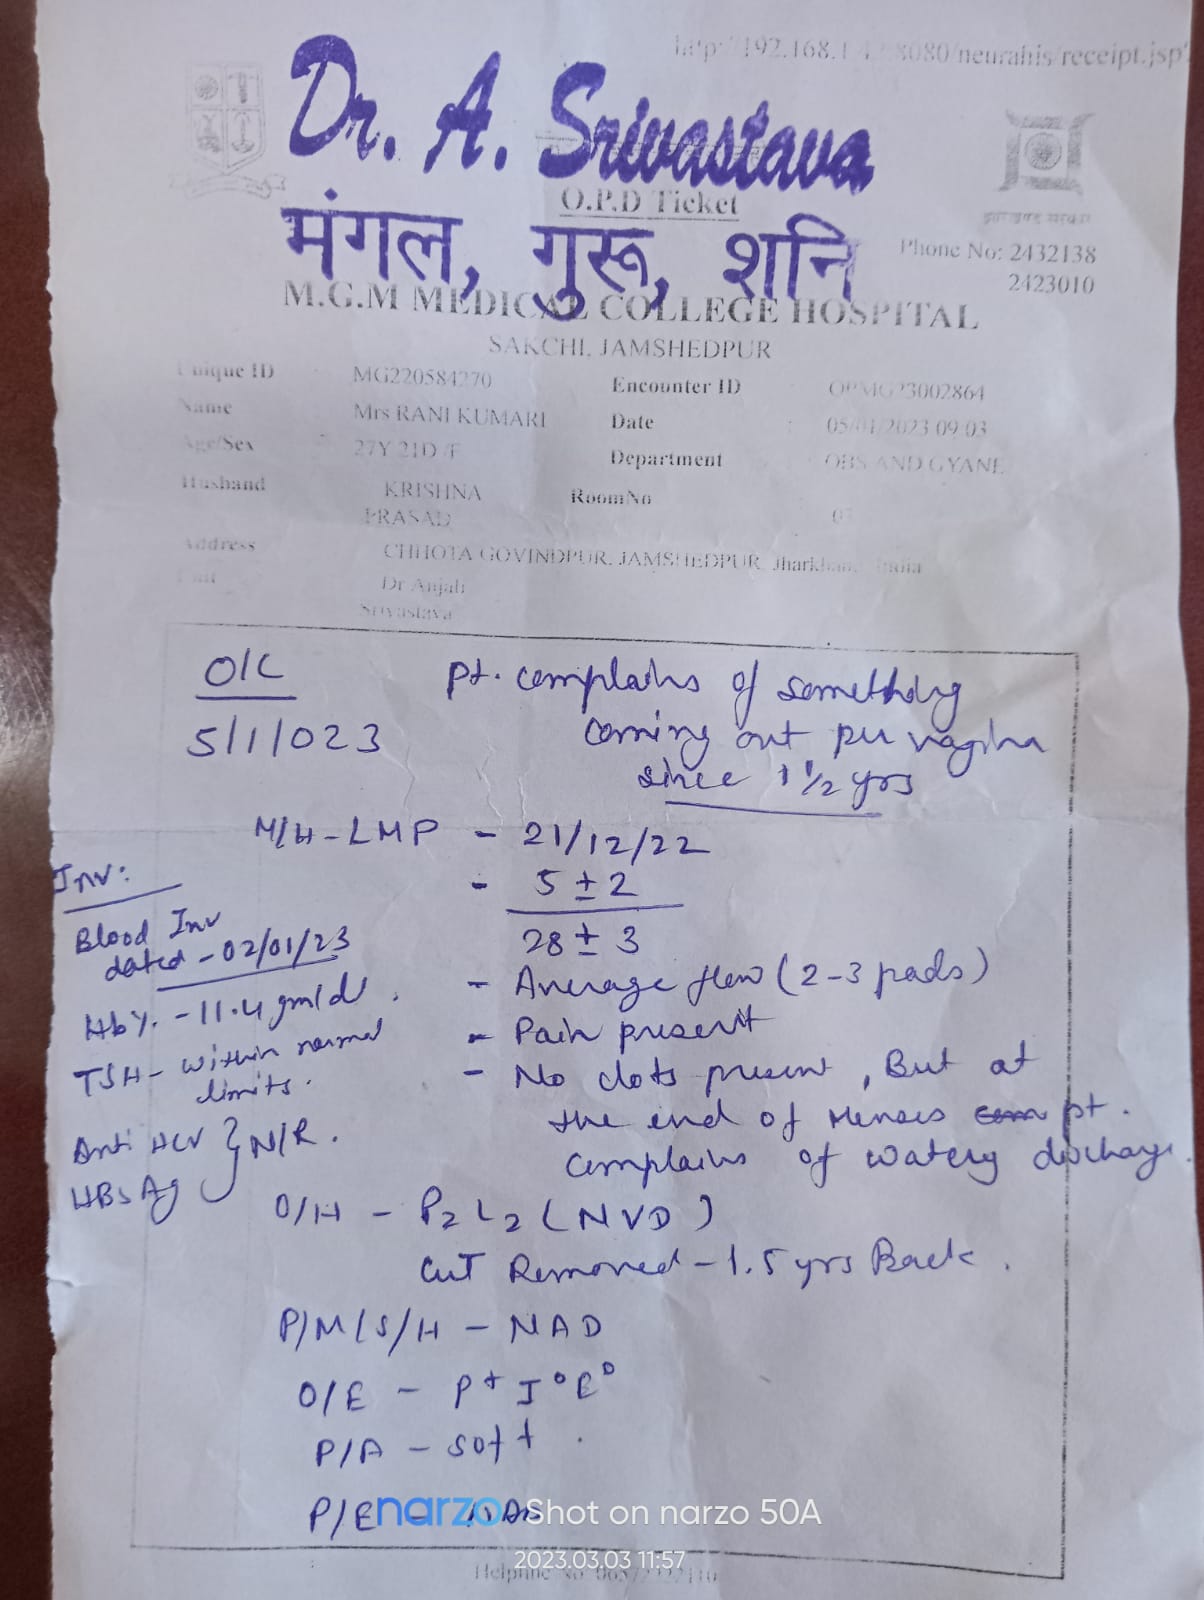 http://192.168.1.42:8080/neurahis/receipt.jsp
Dr. A. Srivastava
O.P.D Ticket
मंगल, गुरू, शनि
झारखण्ड सरकार
Phone No: 2432138
2423010
M.G.M MEDICAL COLLEGE HOSPITAL
SAKCHI, JAMSHEDPUR
Unique ID MG220584270 Encounter ID OPMG23002864
Name Mrs RANI KUMARI Date : 05/01/2023 09:03
Age/Sex : 27Y 21D /F Department : OBS AND GYANE
Husband KRISHNA PRASAD RoomNo
Address CHHOTA GOVINDPUR, JAMSHEDPUR, Jharkhand, India
Unit Dr Anjali Srivastava
O/C
5/1/023
Pt. complains of something
coming out per vagina
since 1 1/2 yrs
M/H - LMP - 21/12/22
- 5 ± 2
28 ± 3
- Average flow (2-3 pads)
- Pain present
- No clots present, But at
the end of Menses pt.
complains of watery discharge.
Inv:
Blood Inv
dated - 02/01/23
Hb%. - 11.4 gm/dl.
TSH - within normal
limits.
Anti HCV } N/R.
HBsAg
O/H - P2L2 (NVD)
CuT Removed - 1.5 yrs Back.
P/M/S/H - NAD
O/E - P+ I° E°
P/A - Soft.
P/E -
narzo Shot on narzo 50A
2023.03.03 11:57
Helpline No